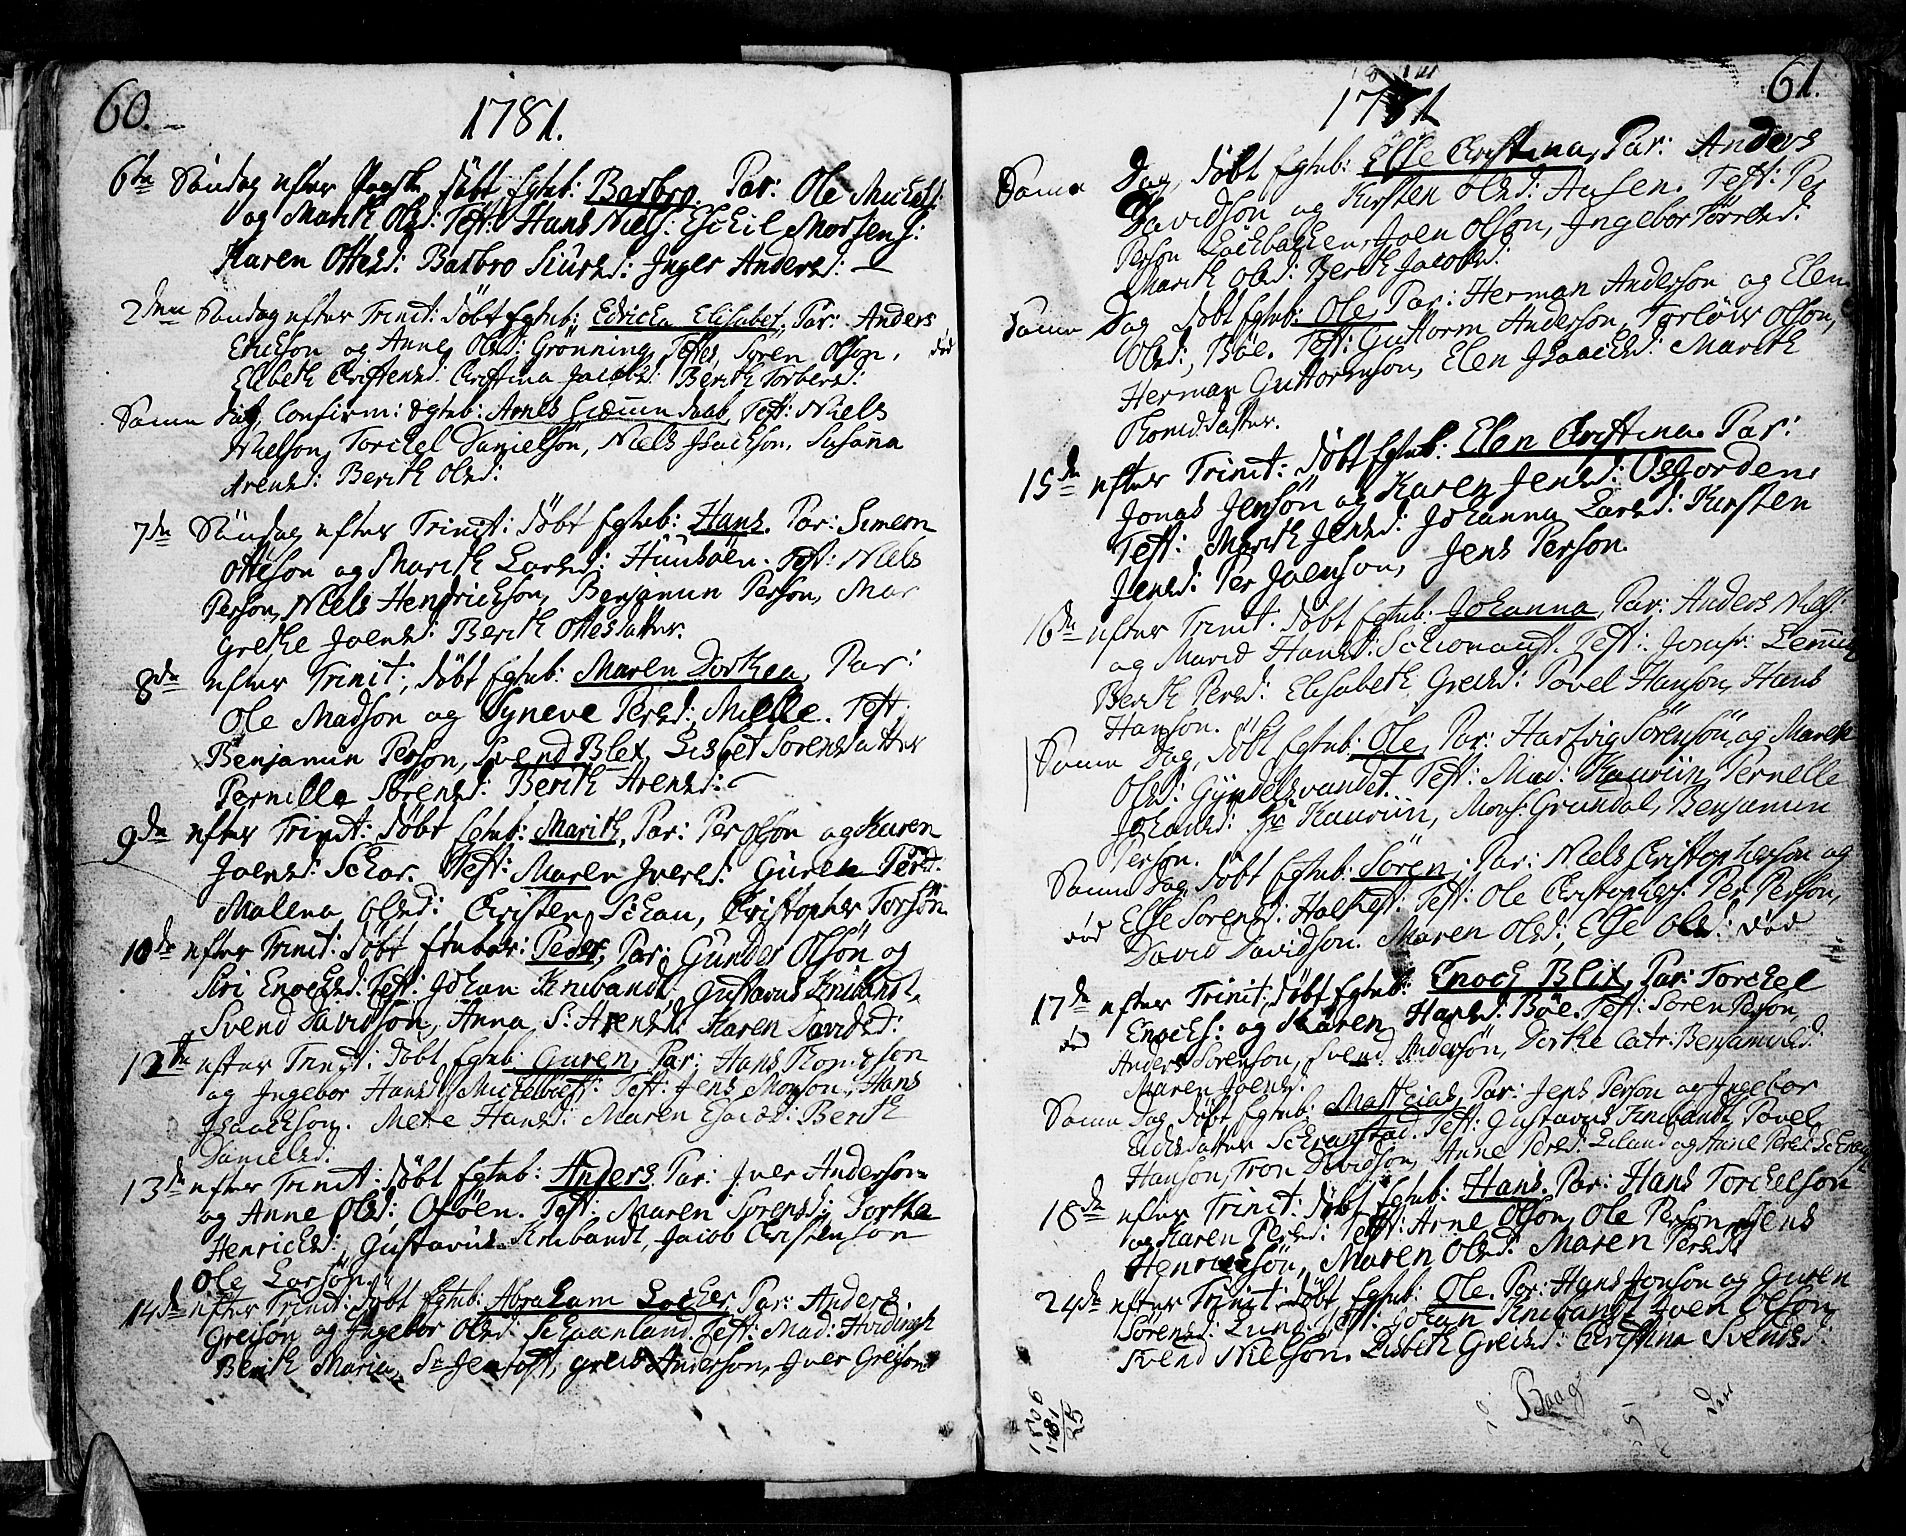 60.
1781.
6te Søndag efter Paaske, døbt Egteb: Barbro. Par: Ole Mickels:
og Marith Olsd: Test: Hans Niels: Eschil Mortens:
Karen Ottesd: Barbro Siursd: Inger Andersd:
2den Søndag efter Trinit: døbt Egteb: Edricka Elisabet, Par: Anders
Erichson og Anne Olsd: Grønning, Testes, Sören Olson, död
Elibeth Christensd: Christina Jacobsd: Berith Torbersd:
Samme Dag, Confirm: Egteb: Test: Niels
Nielson, Torchel Danielsøn, Niels Isachson, Susanna
Arensd: Berith Olsd:
7de Søndag efter Trinit: døbt Egteb: Hans. Par: Simeon
Otteson og Marith Larsd: Huusöen. Test: Niels
Person, Niels Hendrickson, Benjamin Person, Mar
grethe Joensd: Berith Ottesdatter.
8de efter Trinit: døbt Egteb: Maren Dorthea, Par:
Ole Madson og Syneve Persd: Mielle. Test:
Benjamin Person, Svend Blex, Lisbet Sorensdatter
Pernille Sørensd: Berith Arensd:
9de efter Trinit: døbt Egteb: Marith, Par: Per Olsøn og Karen
Joensd: Schar. Test: Maren Iversd: Guren Persd:
Malena Olsd: Christen Schau, Christopher Torsøn
10de efter Trinit: døbt Egteb: Peder, Par: Gunder Olsøn og
Siri Enochsd. Test: Johan Knibandt, Gustavus Knibandt,
Svend Davidsøn, Anna S: Arensd: Karen Davidsd:
12te efter Trinit: døbt Egteb: Guren, Par: Hans Thomeson
og Ingebor Hansd: Test: Jens Monson, Hans
Isaachson. Mete Hansd: Maren Esaiæd: Berith
Danielsd:
13de efter Trinit: døbt Egteb: Anders, Par: Iver Anderson
og Anne Olsd: Oföen. Test: Maren Sorensd: Dorthea
Henrichsd: Gustavus Knibandt, Jacob Christenson
Ole Larsøn.
14de efter Trinit: døbt Egteb: Abraham Locher, Par: Anders
Greison og Ingebor Olsd: Schaanland. Test: Mad: Hvidingh
Berith Maria, Sr Jentoft, Greis Anderson, Iver Greison
61.
1781
Samme Dag, døbt Egteb: Else Christina, Par: Anders
Davidsøn og Kirsten Olsd: Husen. Test: Per
Person Lochbacken, Joen Olsøn, Ingebor Törresd:
Marith Olsd: Berith Jacobsd:
Samme Dag døbt Egteb: Ole, Par: Herman Anderson og Elen
Olsd: Böe. Test: Guttorm Anderson, Torlöw Olsøn,
Herman Guttormson, Elen Isaachsd: Marith
Thomesdatter.
15de efter Trinit: døbt Egteb: Elen Christina. Par:
Jonas Jensøn og Karen Jensd: Osfjorden.
Test: Marith Jensd: Johanna Larsd: Kirsten
Jensd: Per Joenson, Jens Person.
16de efter Trinit: døbt Egteb: Johanna, Par: Anders Niels:
og Marid Hansd: Test: Jomfr:
Berith Persd: Elisabeth Greisd: Povel Hanson, Hans
Hanson.
Samme Dag, døbt Egteb: Ole, Par: Hartvig Sörensön og Mareth
Olsd: Gyndelsvandet. Test: Mad: Kauriin, Pernelle
Johansd: Hr Kauriin, Mons: Grundal, Benjamin
Person.
Samme Dag døbt Egteb: Sören, Par: Niels Christopherson og
Else Sorensd: Test: Ole Christophers: Per Person,
död David Davidson. Maren Olsd: Else Olsd: död
17de efter Trinit: døbt Egteb: Enoch Blix, Par: Torchel
Enochs: og Karen Hansd: Böe. Test: Soren Person,
död Anders Sorenson, Svend Andersøn, Dorthe Catr: Benjaminsd:
Maren Joensd:
Samme Dag døbt Egteb: Matthias, Par: Jens Person og Ingebor
Test: Gustavus Knibandt, Povel
Hanson, Tron Davidsøn, Anne Persd: Eiland og Anne Persd:
18de efter Trinit: døbt Egteb: Hans, Par: Hans Torchelson
og Karen Persd: Test: Arne Olson, Ole Person, Jens
Henricksøn, Maren Olsd: Maren Persd:
24de efter Trinit: døbt Egteb: Ole. Par: Hans Jonson og Guren
Sörensd: Lund. Test: Johan Knibandt, Iven Olsøn,
Svend Nielsøn. Lisbeth Greisd: Christina Svendsd:
1806
1781
25